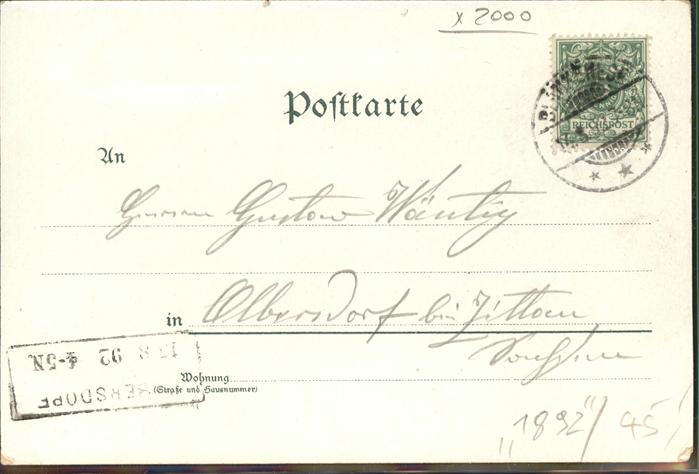 x 2000
REICHSPOST
Postkarte
An
Herrn Gustav Wäntig
in Olbersdorf bei Zittau
Sachsen
Wohnung
(Straße und Hausnummer)
BERSDORF
8 92 4-5N.
"1892"/45